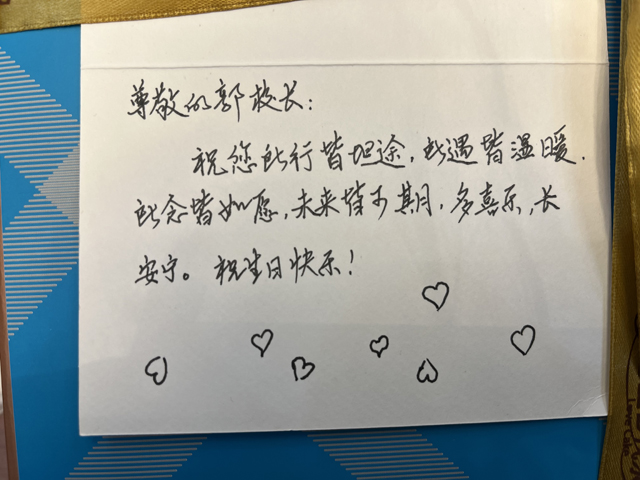 尊敬的部校长：
祝您此行皆坦途，此遇皆温暖．
此念皆如愿，未来皆可期，多喜乐，长
安宁。祝生日快乐！